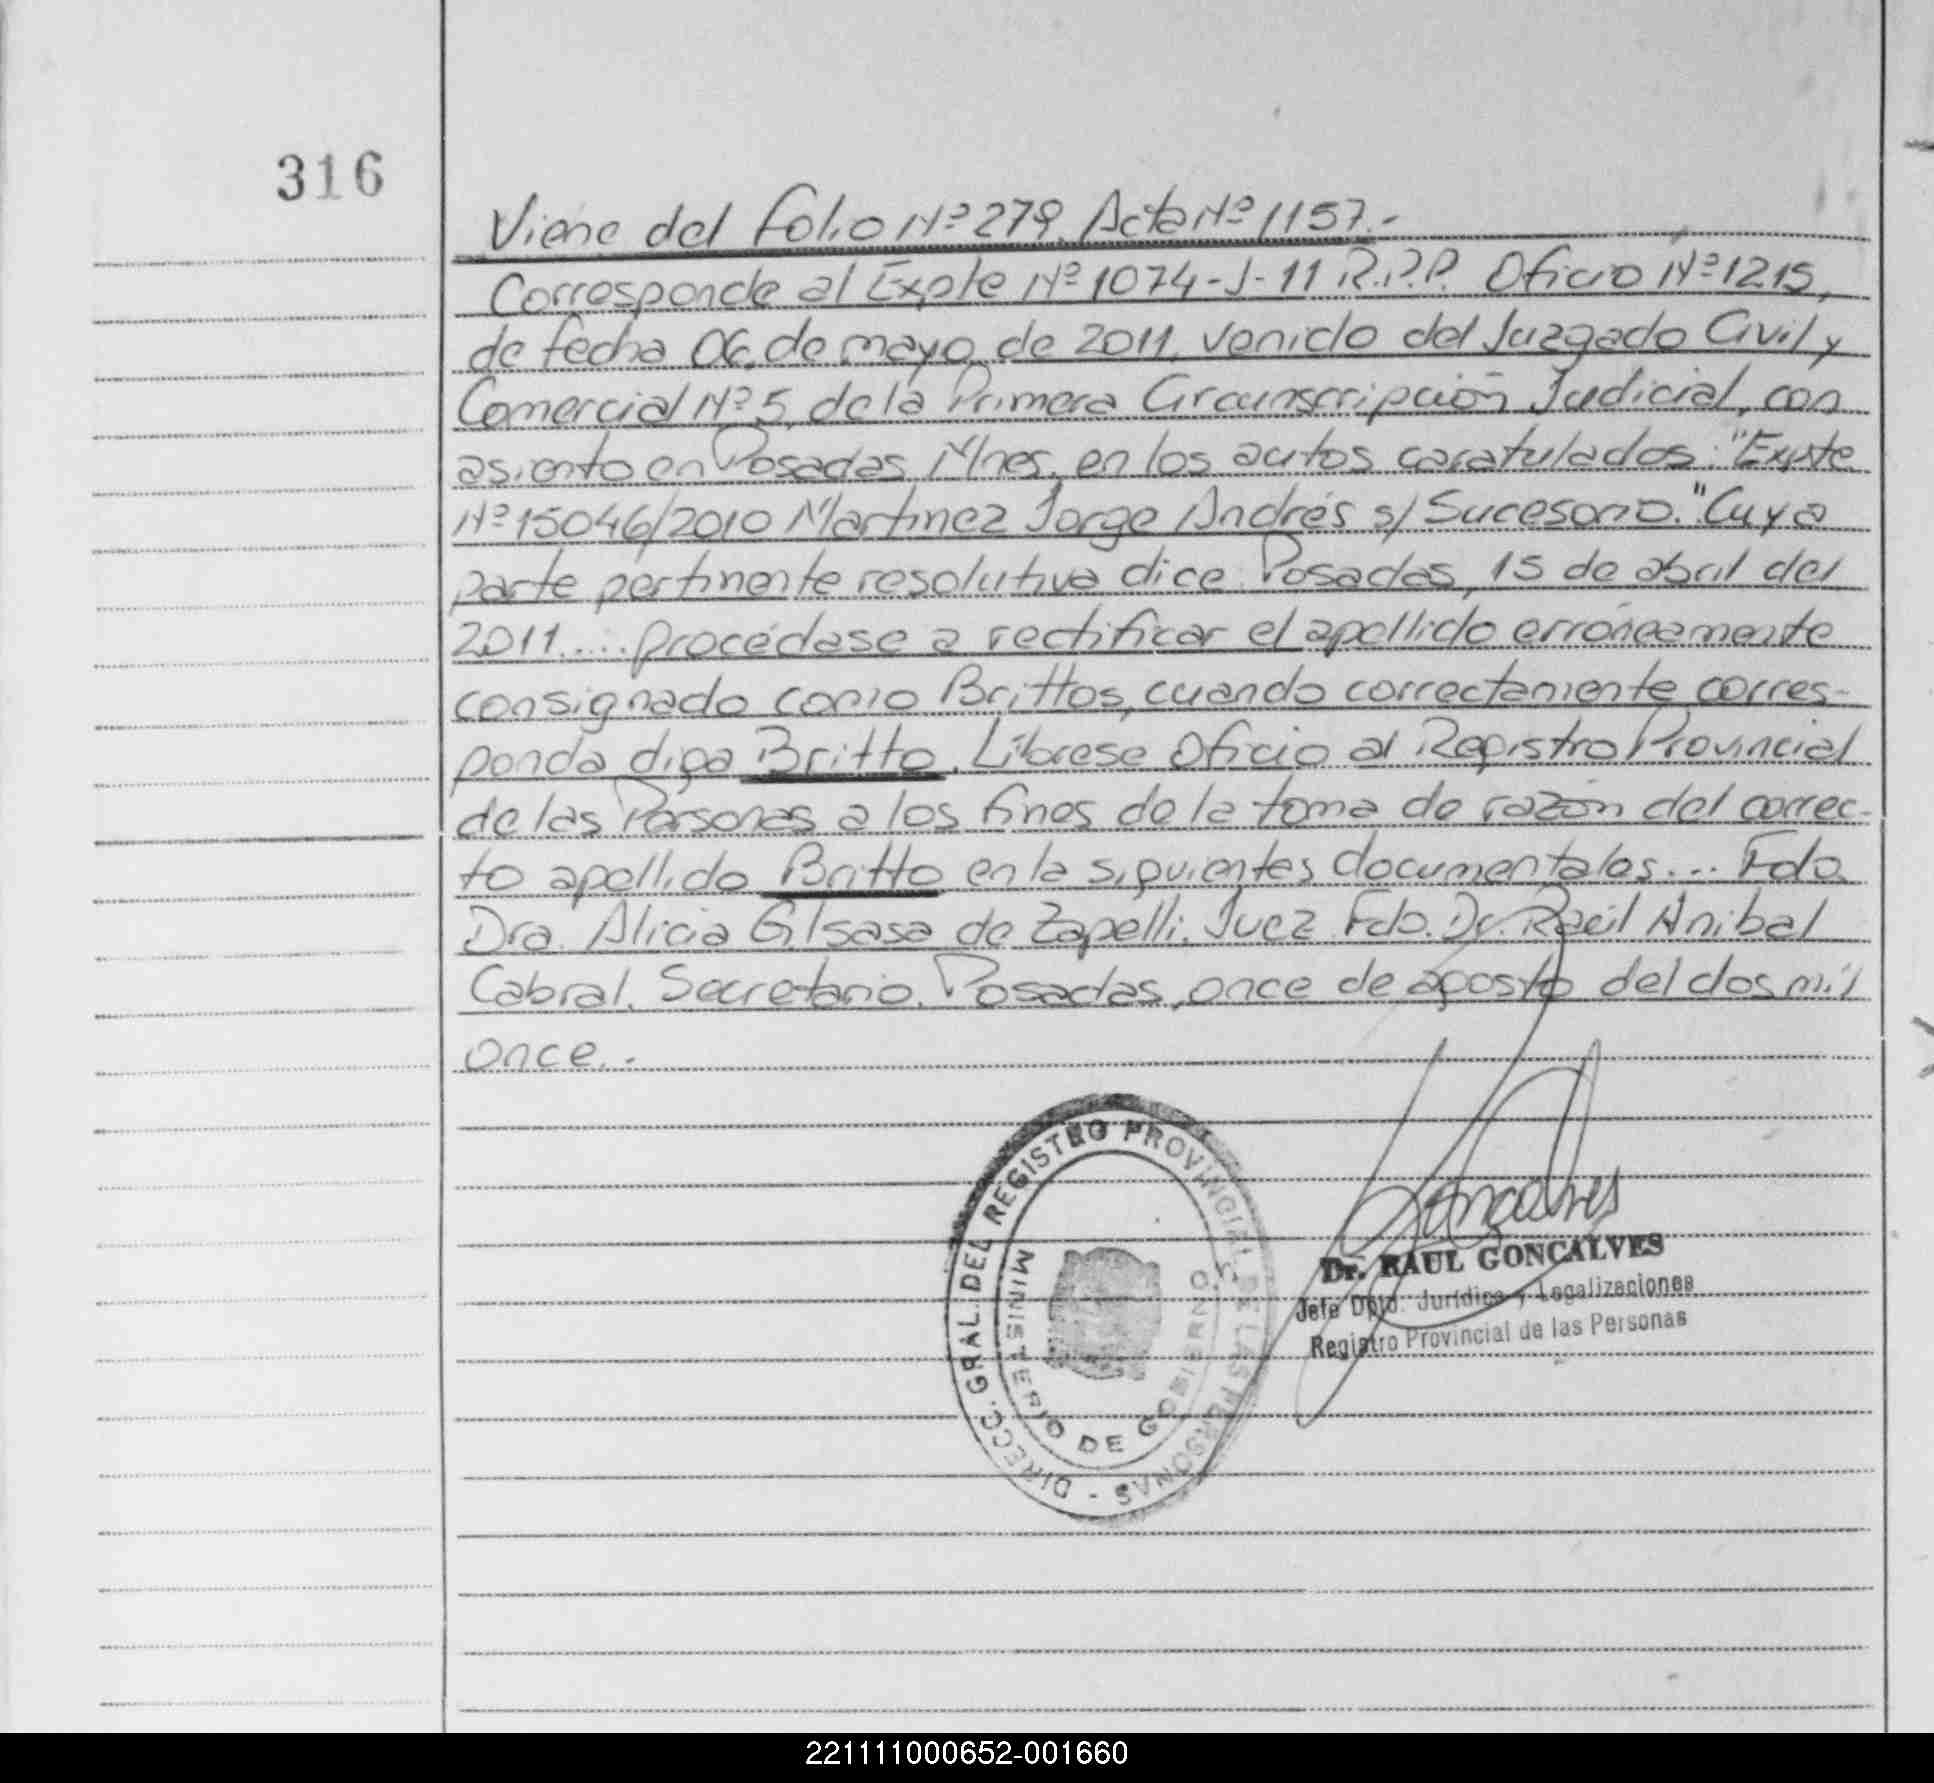 316
Viene del Folio Nº 279. Acta Nº 1157.-
Corresponde al Expte Nº 1074-J-11 R.P.P. Oficio Nº 1215,
de fecha 06, de mayo, de 2011, venido del Juzgado Civil y
Comercial Nº 5, de la Primera Circunscripción Judicial, con
asiento en Posadas Mnes, en los autos caratulados: "Expte
Nº 15046/2010 Martinez Jorge Andrés s/ Sucesorio." Cuya
parte pertinente resolutiva dice: Posadas, 15 de abril del
2011.... procédase a rectificar el apellido erróneamente
consignado como Brittos, cuando correctamente corres-
ponda diga Britto. Líbrese Oficio al Registro Provincial
de las Personas a los fines de la toma de razón del correc-
to apellido Britto en la siguientes documentales... Fdo.
Dra. Alicia Gilsasa de Zapelli. Juez Fdo. Dr. Raúl Anibal
Cabral. Secretario. Posadas, once de agosto del dos mil
once.-
DIRECC. GRAL. DEL REGISTRO PROVINCIAL DE LAS PERSONAS -
MINISTERIO DE GOBIERNO
Goncalves
Dr. RAUL GONCALVES
Jefe Dpto. Jurídico y Legalizaciones
Registro Provincial de las Personas
221111000652-001660